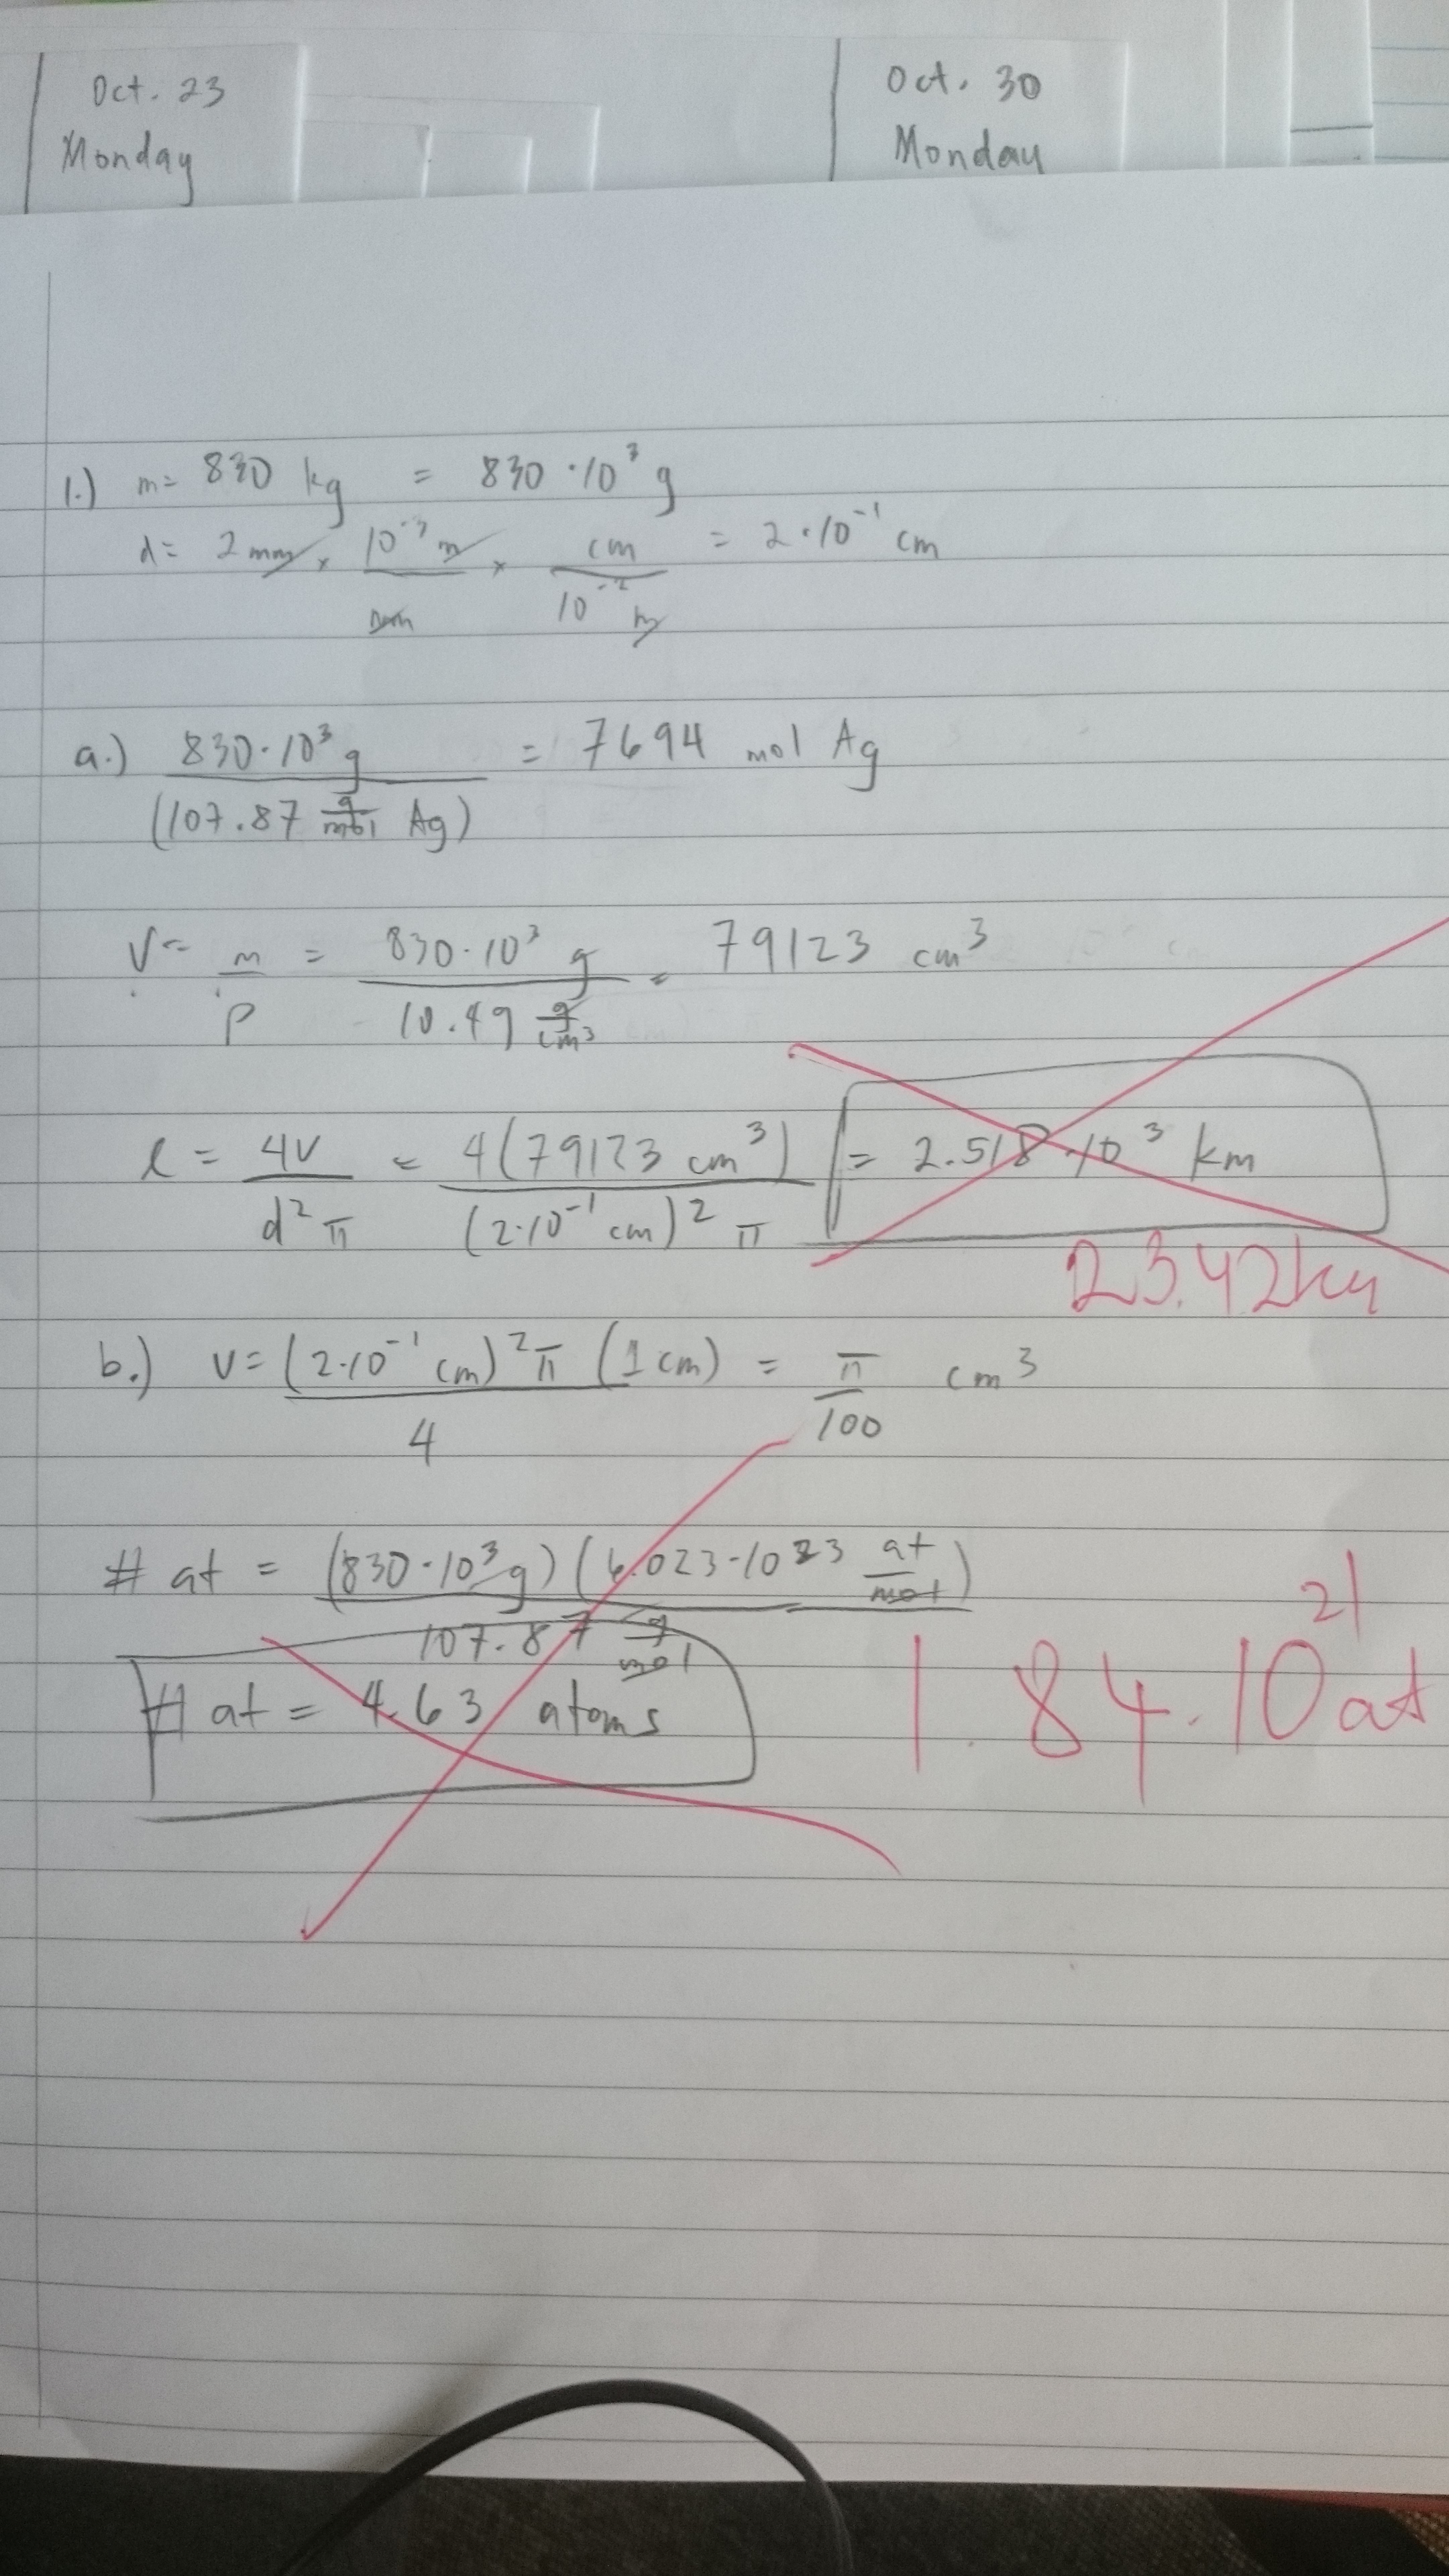 Oct. 23
Monday
Oct. 30
Monday
1.) m= 830 kg = 830 · 10³ g
d= 2 mm × 10⁻³ m / mm × cm / 10⁻² m = 2 · 10⁻¹ cm
a.) 830 · 10³ g / (107.87 g/mol Ag) = 7694 mol Ag
V = m / ρ = 830 · 10³ g / 10.49 g/cm³ = 79123 cm³
l = 4V / d² π = 4(79123 cm³) / (2·10⁻¹ cm)² π = 2.518 · 10³ km
23.42km
b.) V = (2·10⁻¹ cm)² π (1 cm) / 4 = π / 100 cm³
# at = (830 · 10³ g) (6.023 · 10²³ at/mol) / 107.87 g/mol
# at = 4.63 atoms
1.84 · 10²¹ at